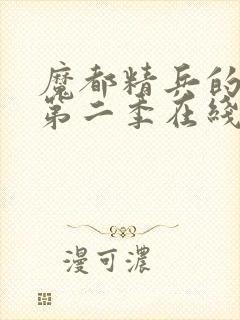 魔都精兵的
第二季在线
漫可濃